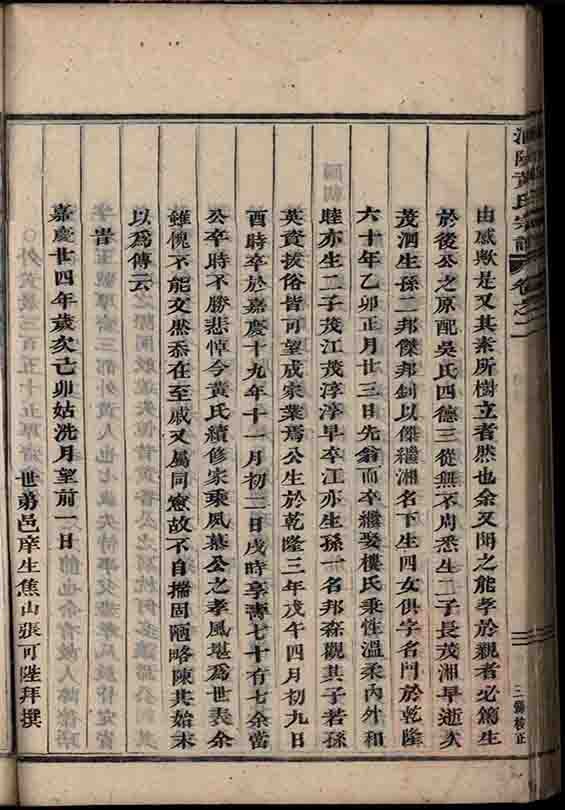 黃氏宗譜 卷之二
三錫校正
由感歟是又其素所樹立者然也余又聞之能孝於親者必篤生
於後公之原配吳氏四德三從無不周悉生二子長茂湘早逝次
茂泗生孫二邦傑邦釗以傑繼湘名下生四女俱字名門於乾隆
六十年乙卯正月廿三日先翁而卒繼娶樓氏秉性溫柔內外和
睦亦生二子茂江茂淳淳早卒江亦生孫一名邦森觀其子若孫
英資拔俗皆可望成家業焉公生於乾隆三年戊午四月初九日
酉時卒於嘉慶十九年十一月初二日戌時享壽七十有七余當
公卒時不勝悲悼今黃氏續修家乘夙慕公之孝風堪為世表余
雖愧不能文然忝在至戚又屬同窻故不自揣固陋略陳其始末
以為傳云
旹
嘉慶廿四年歲次己卯姑洗月望前一日
世弟邑庠生焦山張可陞拜撰